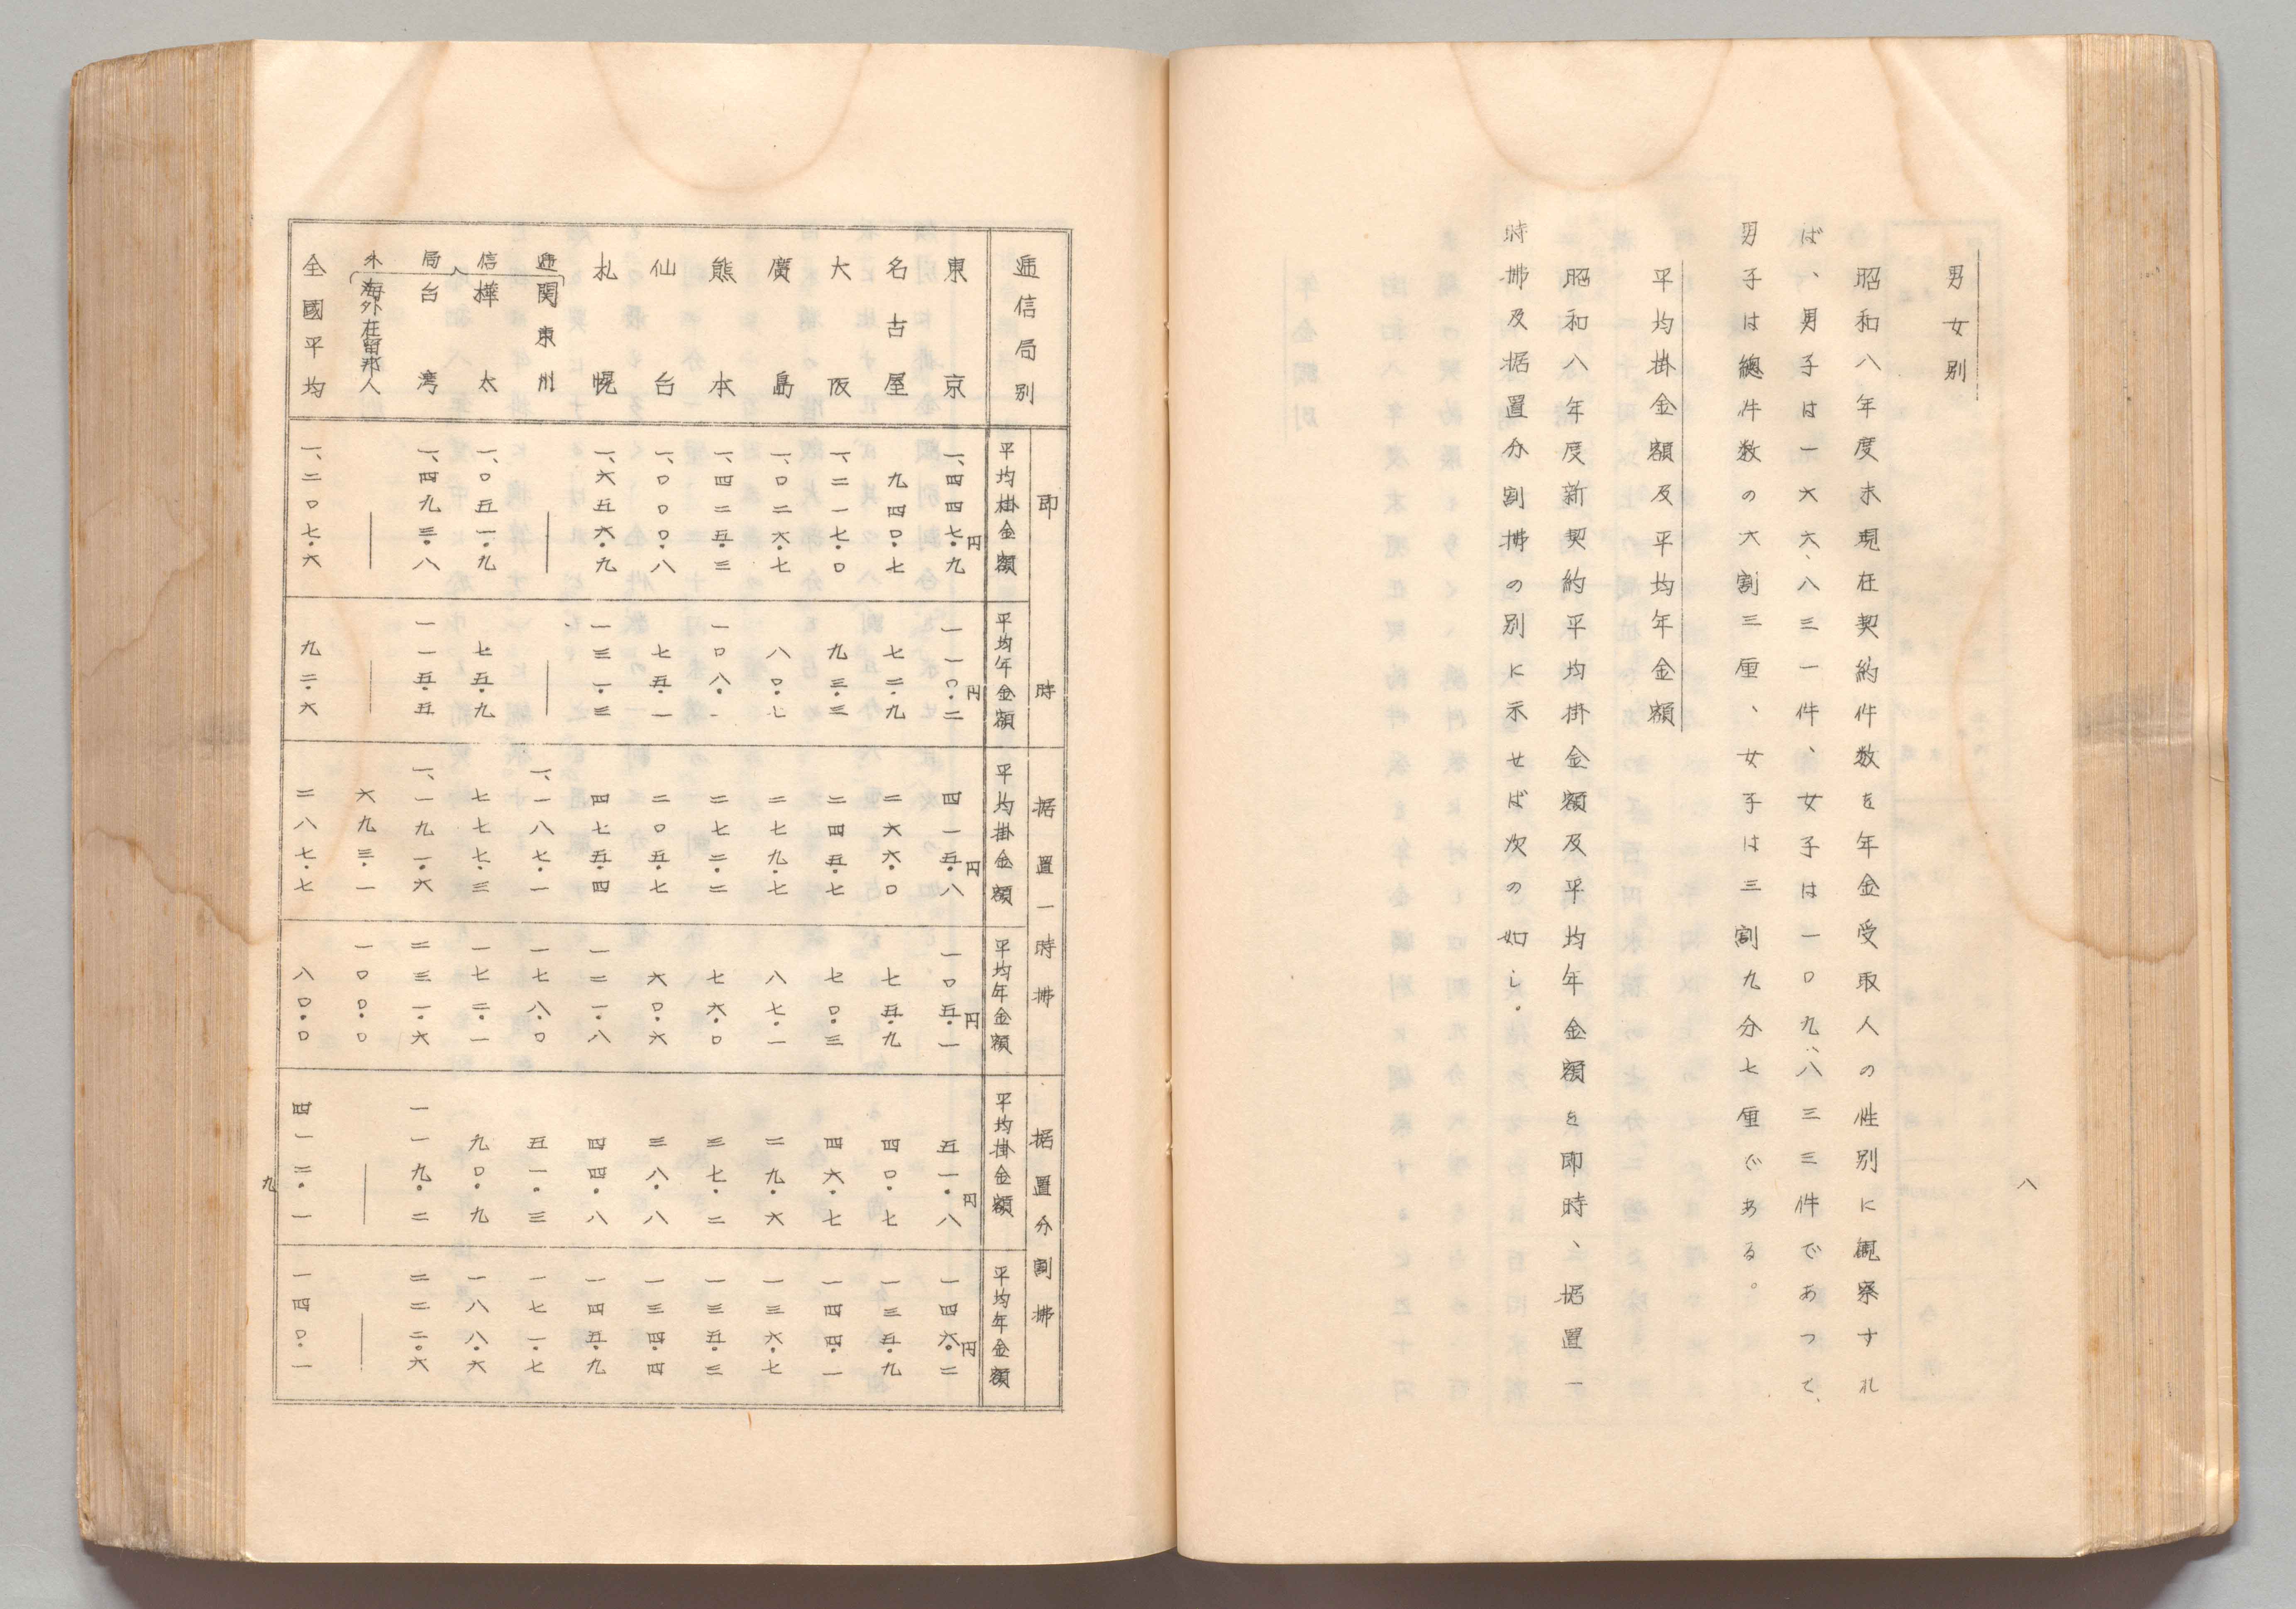 八
男女別
昭和八年度末現在契約件数を年金受取人の性別に観察すれ
ば、男子は一六六、八三一件、女子は一〇九、八三三件であつて、
男子は總件数の六割三厘、女子は三割九分七厘である。
平均掛金額及平均年金額
昭和八年度新契約平均掛金額及平均年金額を即時、据置一
時拂及据置分割拂の別に示せば次の如し.
逓信局別 即時 据置一時拂 据置分割拂
平均掛金額 平均年金額 平均掛金額 平均年金額 平均掛金額 平均年金額
東京 一、四四七・九円 一一〇・二円 四一五・八円 一〇五・一円 五一・八円 一四六・二円
名古屋 九四〇・七 七二・九 二六六・〇 七五・九 四〇・七 一三五・九
大阪 一、二一七・〇 九三・三 二四五・七 七〇・三 四六・七 一四四・一
廣島 一、〇二六・七 八〇・七 二七九・七 八七・一 二九・六 一三六・七
熊本 一、四二五・三 一〇八・一 二七二・二 七六・〇 三七・二 一三五・三
仙台 一、〇〇〇・八 七五・一 二〇五・七 六〇・六 三八・八 一三四・四
札幌 一、六五六・九 一三一・三 四七五・四 一二一・八 四四・八 一四五・九
逓信局外
関東州 ― ― 一、一八七・一 一七八・〇 五一・三 一七一・七
樺太 一、〇五一・九 七五・九 七七七・三 一七二・一 九〇・九 一八八・六
台湾 一、四九三・八 一一五・五 一、一九一・六 二三一・六 一一九・二 二二二・六
海外在留邦人 ― ― 六九三・一 一〇〇・〇 ― ―
全國平均 一、二〇七・六 九二・六 二八七・七 八〇・〇 四一二・一 一四〇・一
九